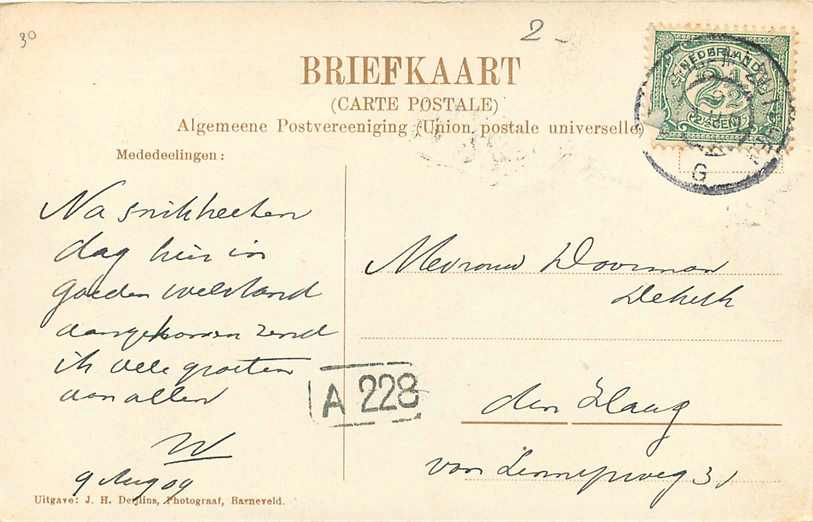 30
2 -
BRIEFKAART
(CARTE POSTALE)
Algemeene Postvereeniging (Union postale universelle)
NEDERLAND
2½
Mededeelingen:
Na snikheeten
dag hier in
goeden welstand
aangekomen zend
ik vele groeten
aan allen
W
9 Aug 09
Mevrouw Doorman
den Haag
van Lennepweg 31
A 228
Uitgave: J. H. Derjlins, Photograaf, Barneveld.